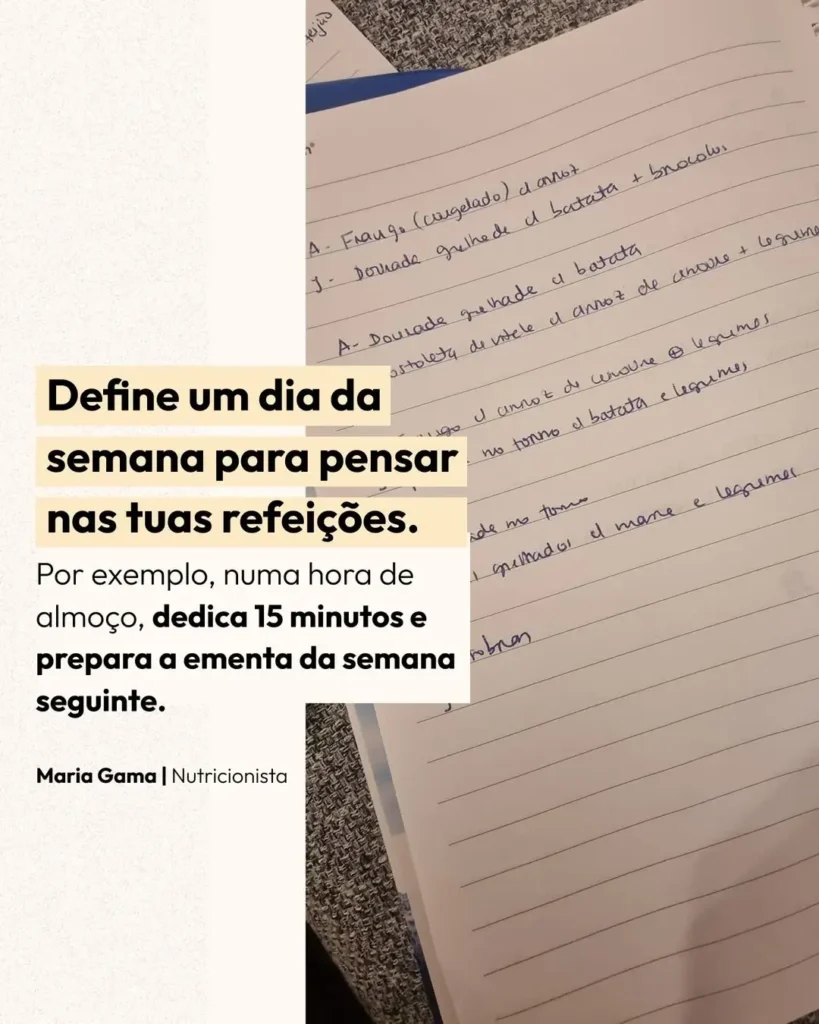 eijão
A - Frango (congelado) c/ arroz
J - Dourada grelhada c/ batata + brocolos
A - Dourada grelhada c/ batata
ostoleta de vitela c/ arroz de cenoura + legume
c/ arroz de cenoura ⊕ legumes
no forno c/ batata e legumes
de no forno
grelhados c/ massa e legumes
Define um dia da
semana para pensar
nas tuas refeições.
Por exemplo, numa hora de
almoço, dedica 15 minutos e
prepara a ementa da semana
seguinte.
Maria Gama | Nutricionista